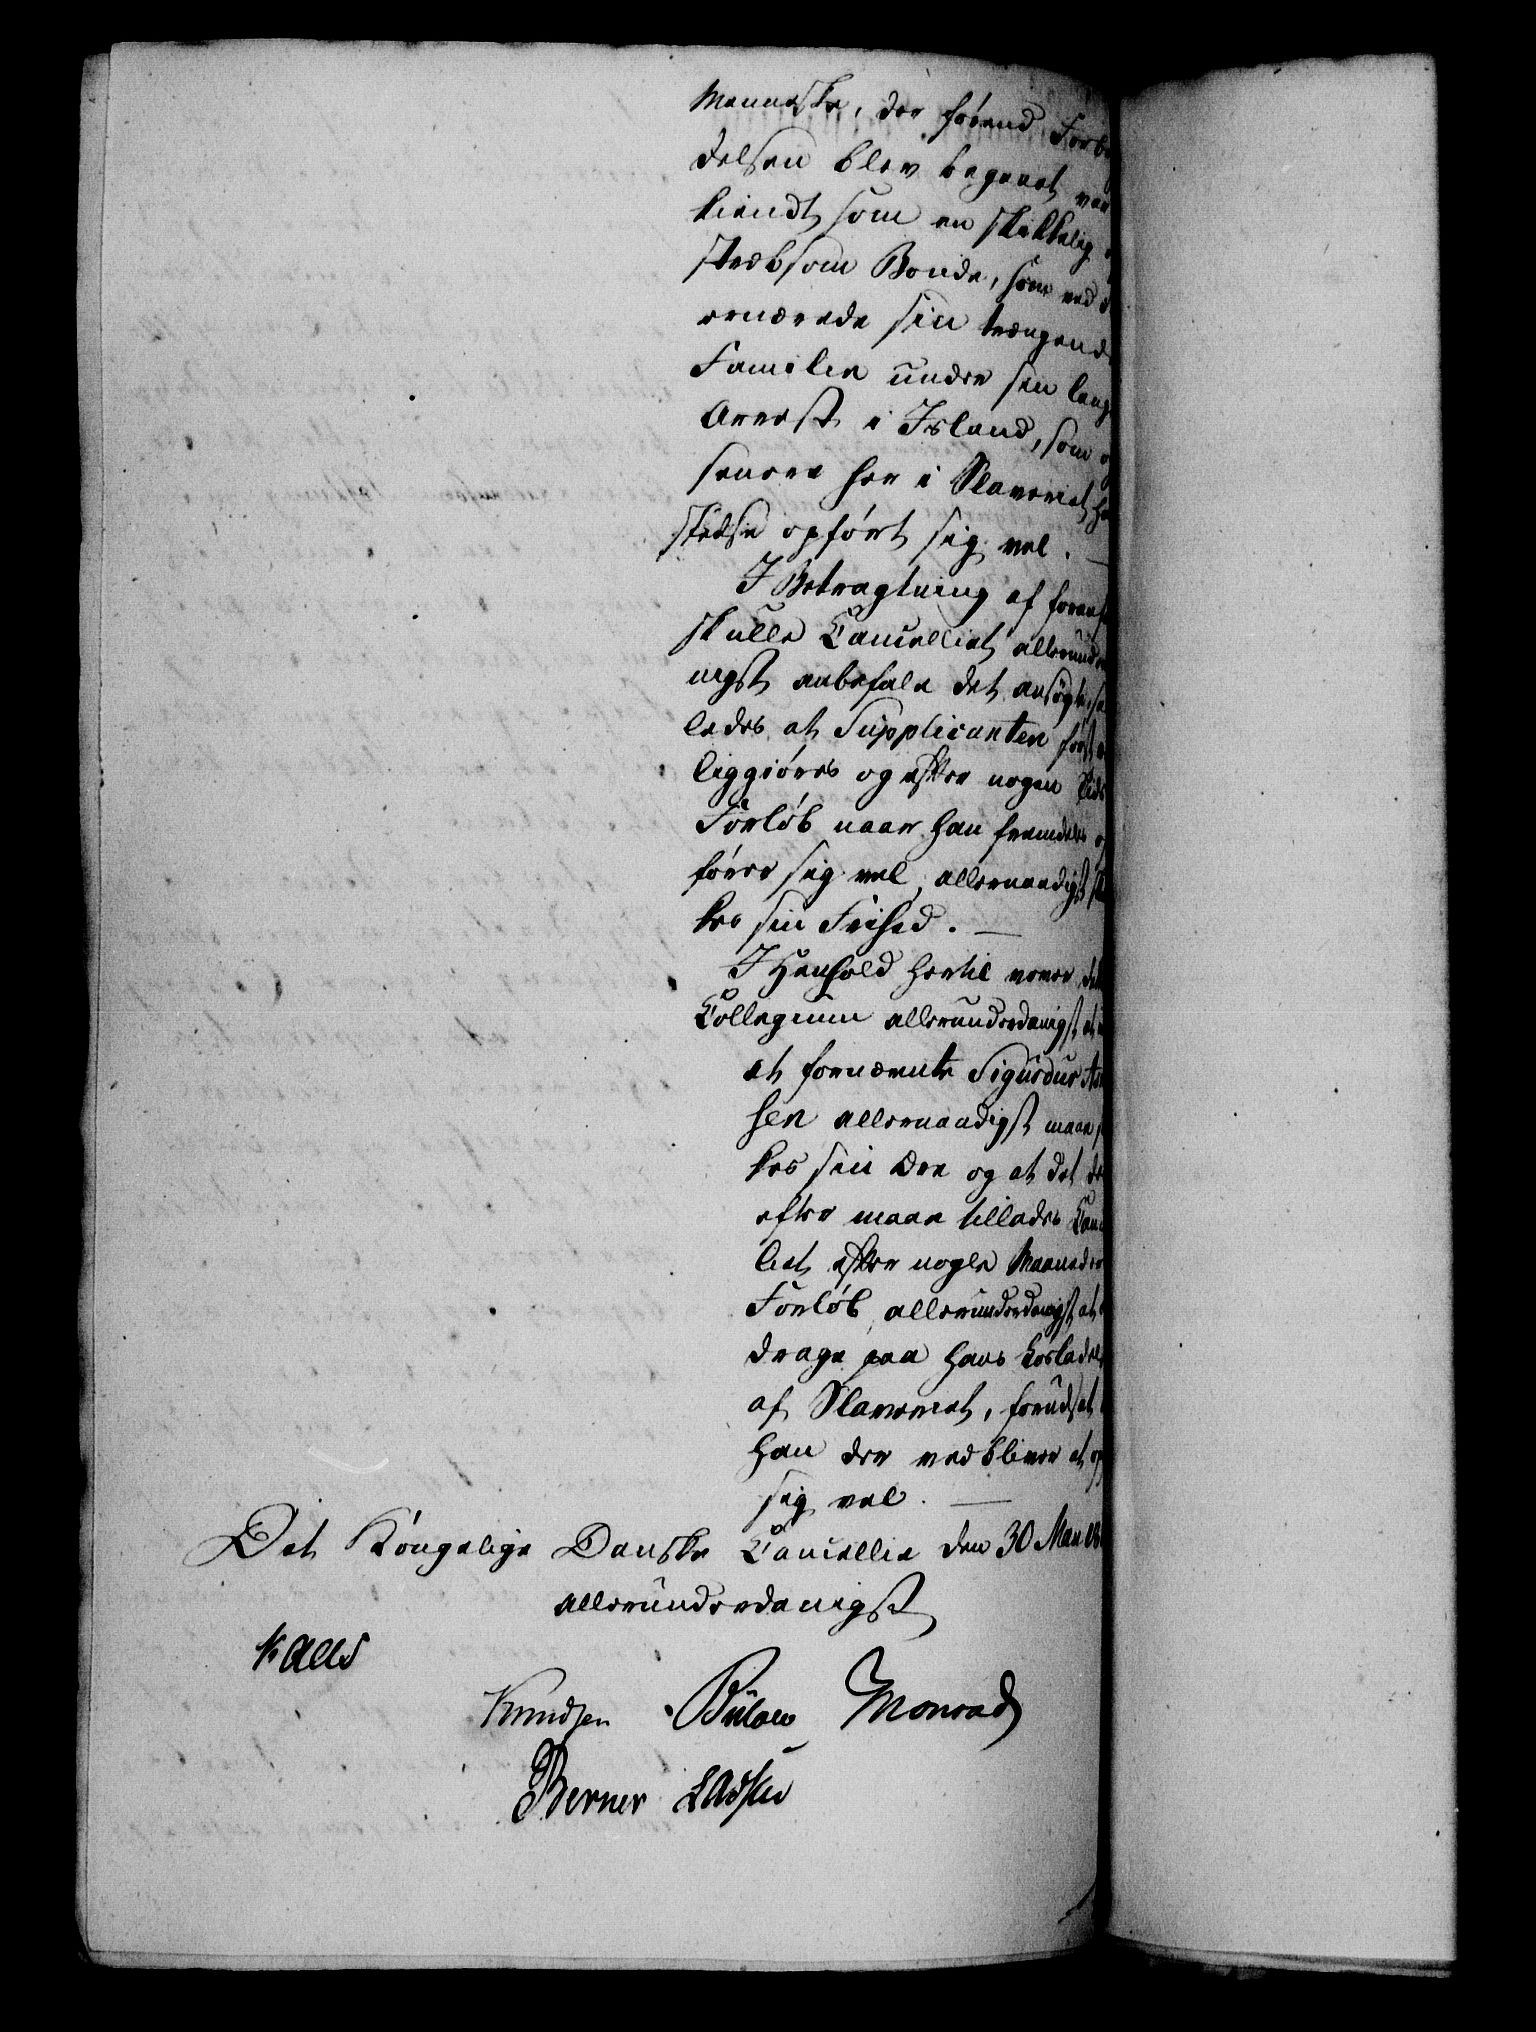 Menneske, der förend Forbr
delsen blev begaaet, var
kiendt som en skikkelig
stræbsom Bonde, som ved
ernærede sin trængend
Familie under sin lang
Arrest i Island, som og
senere her i Slaveriet, ha
stedse opfört sig vel. —
I Betragtning af foranf
skulle Cancelliet allerunder
nigst anbefale det ansøgte, saa
ledes at Supplicanten først
liggiöres og efter nogen Tids
Forlöb naar han fremdeles op
förer sig vel, allernaadigst skien
kes sin Frihed. —
I Henhold hertil vover dette
Collegium allerunderdanigst at
at fornævnte Sigurdur
sen allernaadigst maae
kes sin Ære og at det der
efter maae tillades Cancel
liet efter nogle Maaneders
Forlöb, allerunderdanigst at
drage paa hans Löslade
af Slaveriet, forudsat
han der vedbliver at op
sig vel. —
Det Kongelige Danske Cancellie den 30 Mai 18
allerunderdanigst
Kaas
Knudsen Bülow Monrad
Berner Lassen